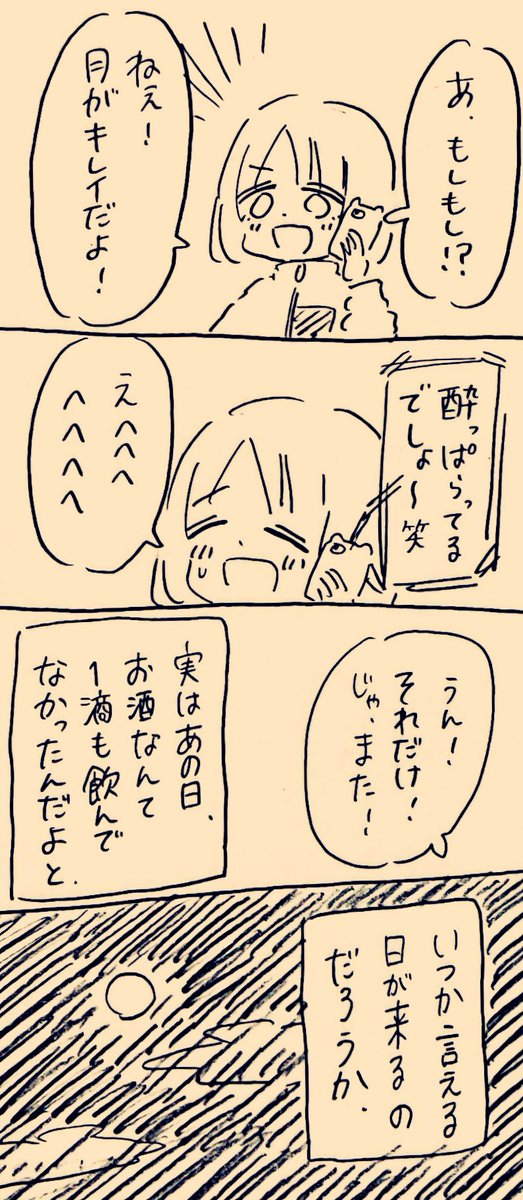 あ、もしもし!?
ねぇ!
月がキレイだよ!
酔っぱらってる
でしょ〜笑
えへへへ
へへへへ
うん!
それだけ!
じゃ、また!
実はあの日、
お酒なんて
1滴も飲んで
なかったんだよと、
いつか言える
日が来るの
だろうか、